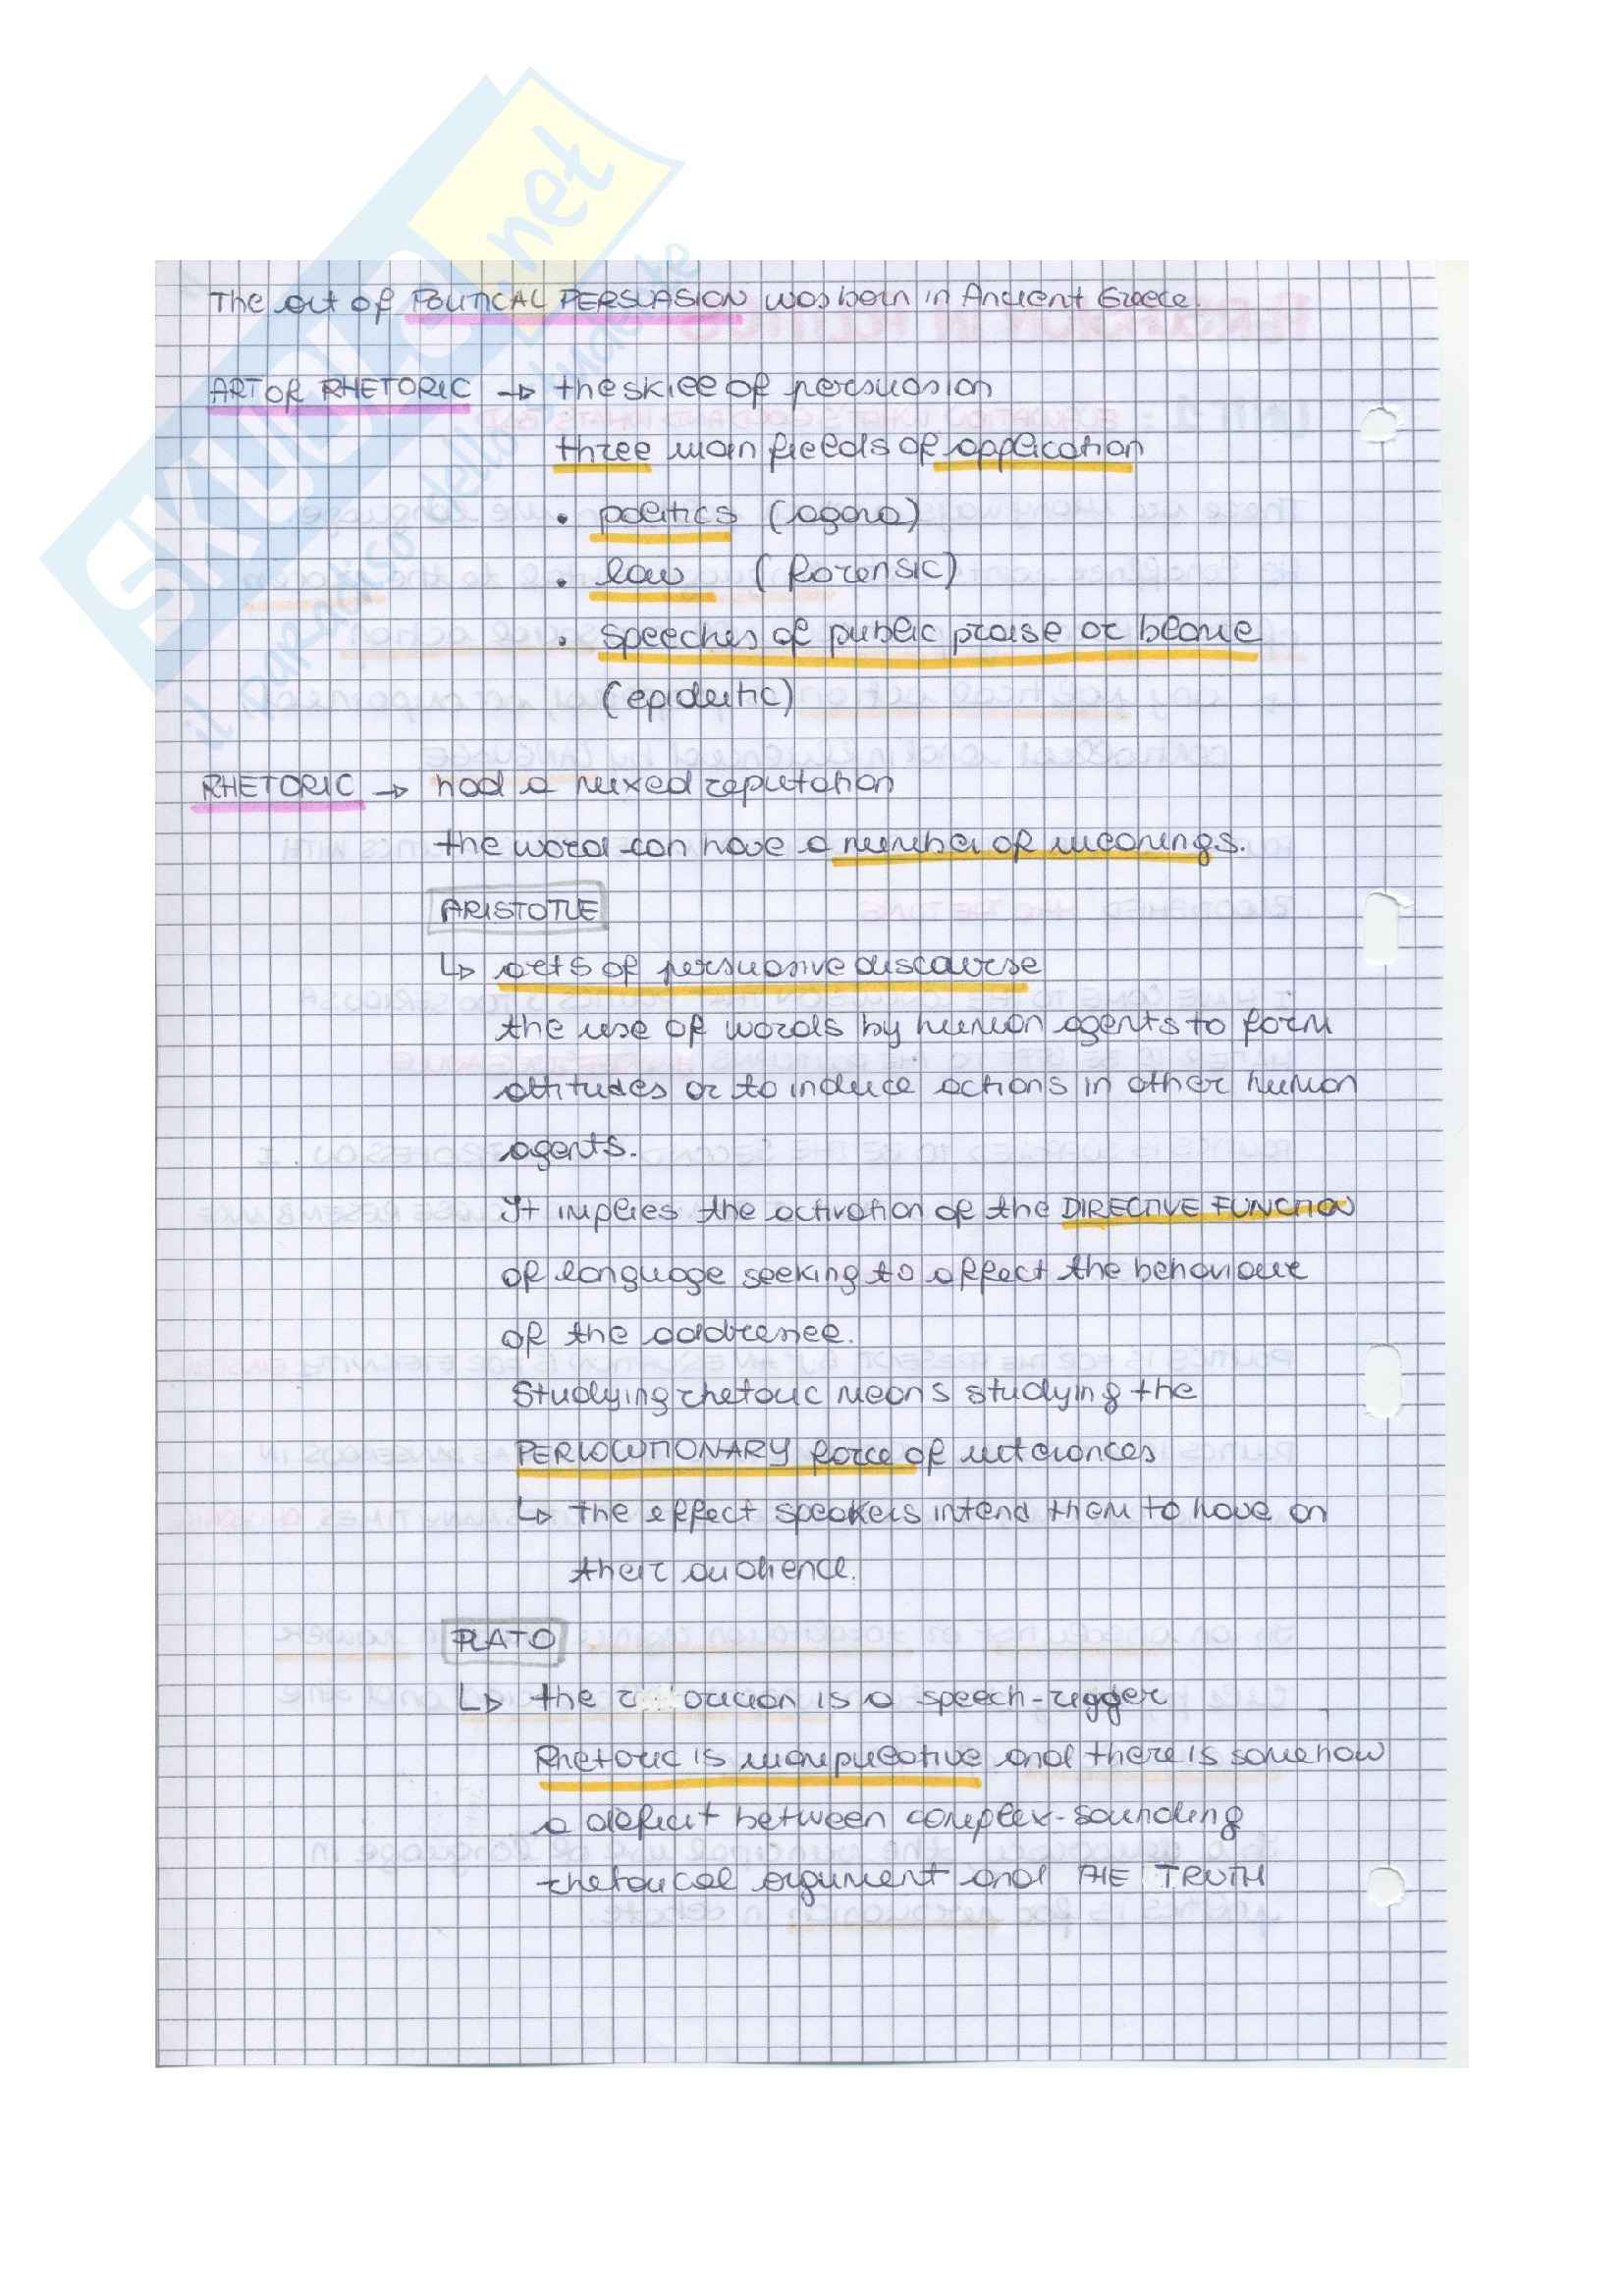 SKUOLA.net
il paradiso dello studente
The art of POLITICAL PERSUASION was born in Ancient Greece.
ART OF RHETORIC → the skill of persuasion
three main fields of application
• politics (agora)
• law (forensic)
• speeches of public praise or blame
(epideitic)
RHETORIC → had a mixed reputation
the word can have a number of meanings.
ARISTOTLE
↳ acts of persuasive discourse
the use of words by human agents to form
attitudes or to induce actions in other human
agents.
It implies the activation of the DIRECTIVE FUNCTION
of language seeking to affect the behaviour
of the addressee.
Studying rhetoric means studying the
PERLOCUTIONARY force of utterances
↳ the effect speakers intend them to have on
their audience.
PLATO
↳ the is a speech-rigger
Rhetoric is manipulative and there is somehow
a deficit between complex-sounding
rhetorical argument and THE TRUTH